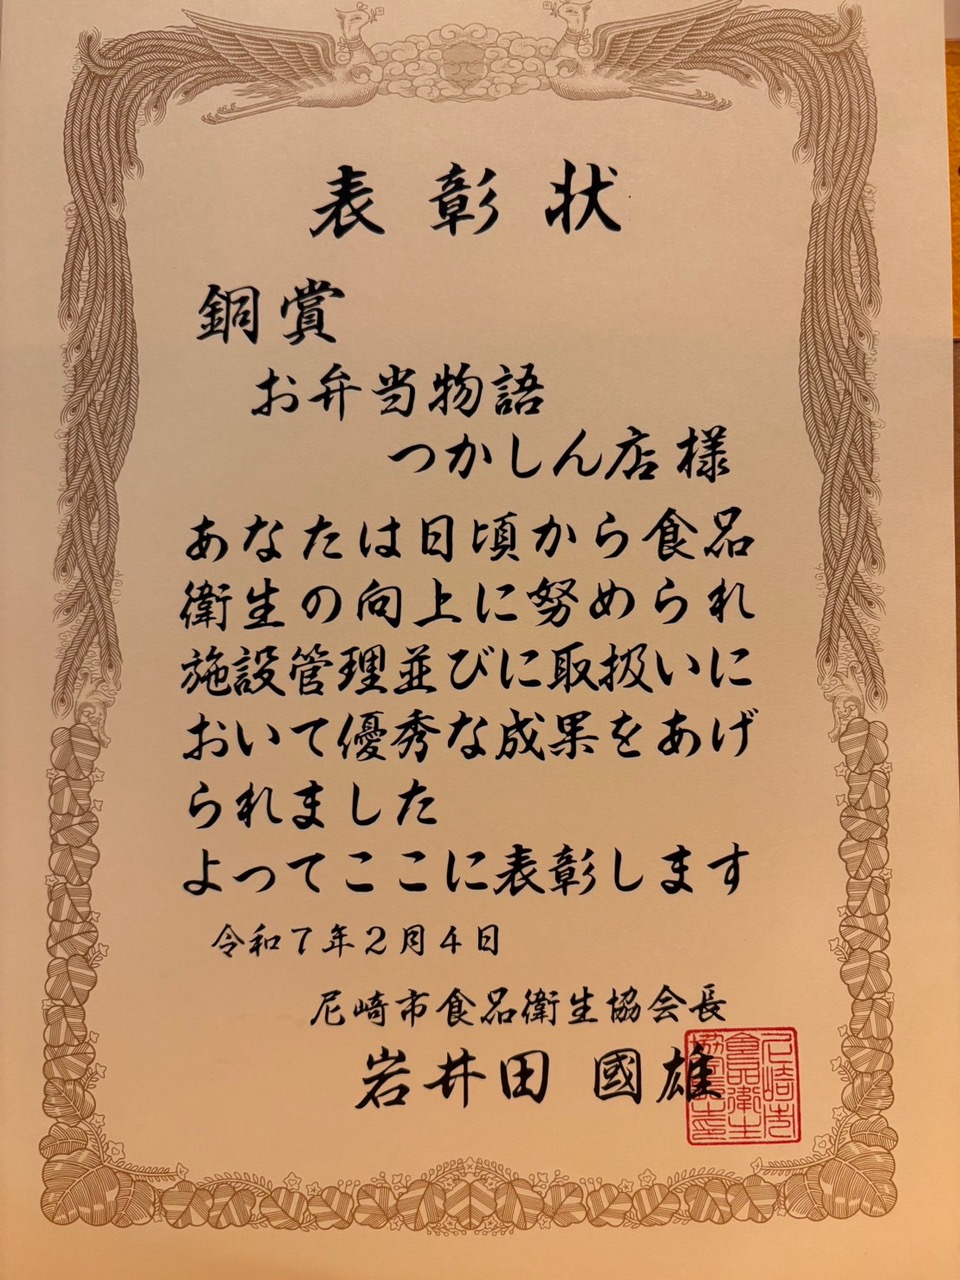 表彰状
銅賞
お弁当物語
つかしん店様
あなたは日頃から食品
衛生の向上に努められ
施設管理並びに取扱いに
おいて優秀な成果をあげ
られました
よってここに表彰します
令和7年2月4日
尼崎市食品衛生協会長
岩井田 國雄